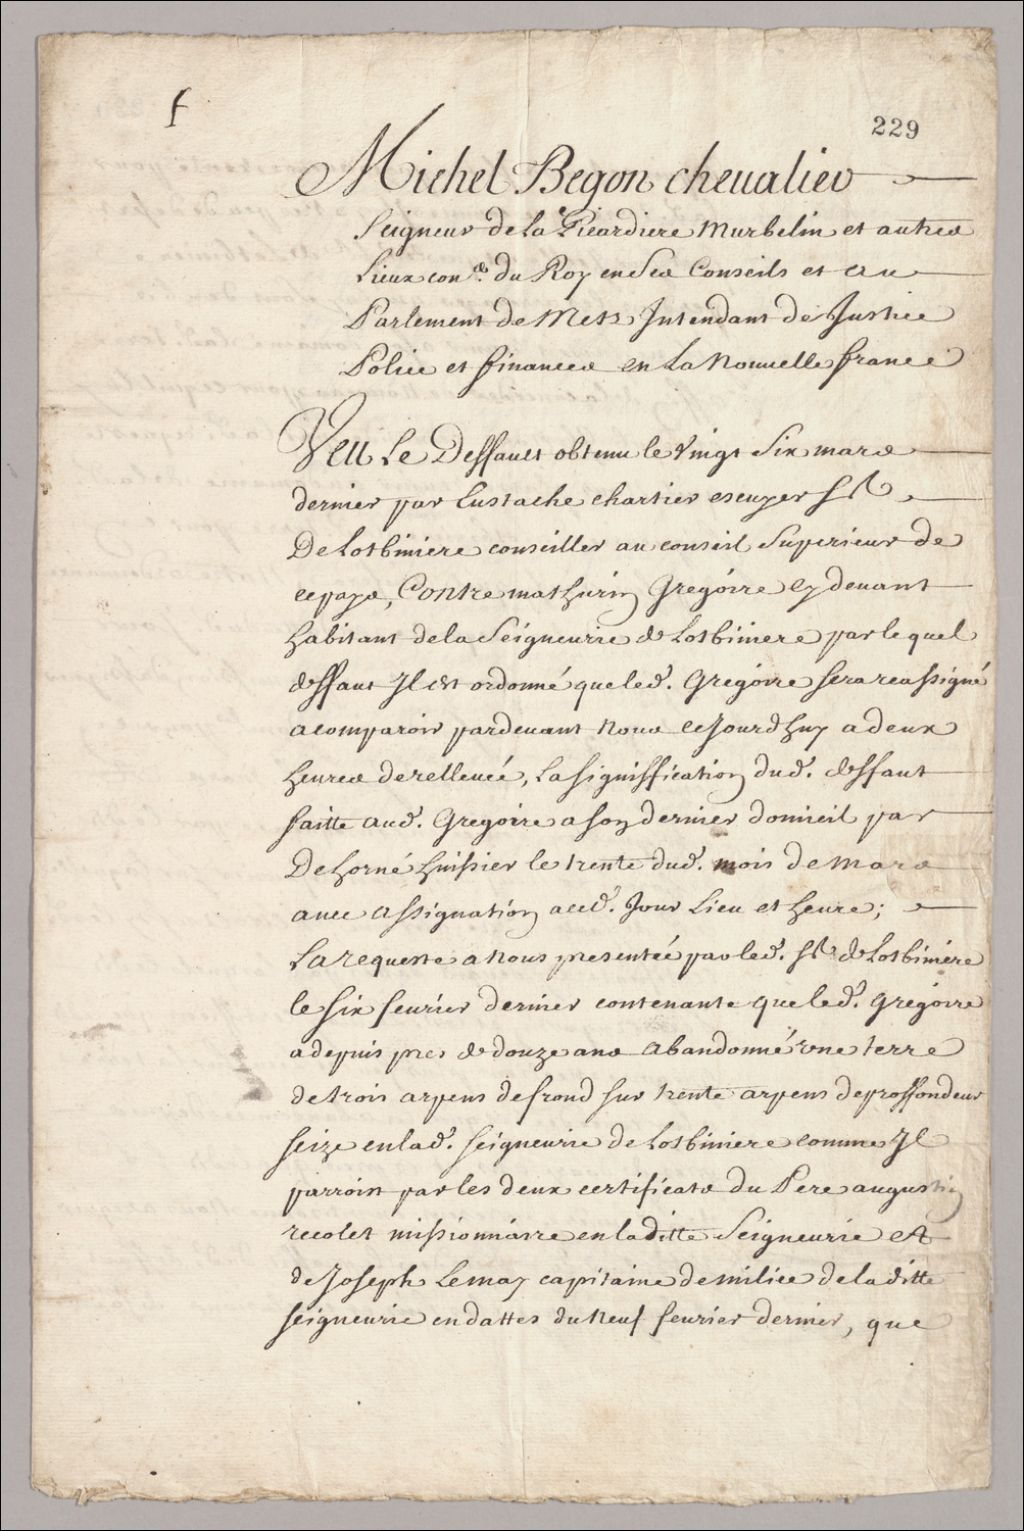 f
229
Michel Begon chevalier
Seigneur de la Picardiere Murbelin et autres
Lieux con.er du Roy en Ses Conseils et au
Parlement de Mets Intendant de Justice
Police et finances en La Nouvelle france
Veu Le Deffault obtenu le Vingt Six mars
dernier par Eustache chartier escuyer Sr.
De Lotbiniere conseiller au conseil Superieur de
ce pays, Contre mathurin Gregoire cy devant
habitant de la Seigneurie de Lotbiniere par lequel
deffaut Il est ordonné que led. Gregoire sera reassigné
a comparoir pardevant Nous cejourdhuy a deux
heures de relleveé, la signiffication dud. deffaut
faitte aud. Gregoire a son dernier domicil par
Dehorné huissier le trente dud. mois de mars
avec assignation a ced. Jour Lieu et heure;
La requeste a Nous presenteé par led. Sr. de Lotbiniere
le six fevrier dernier contenante que led. Gregoire
a depuis pres de douze ans abandonné une terre
de trois arpens de frond sur trente arpens de proffondeur
seize en lad. seigneurie de Lotbiniere comme Il
parroist par les deux certificats du Pere augustin
recolet missionnaire en laditte Seigneurie et
de Joseph Lemay capitaine de milice de laditte
seigneurie en dattes du Neuf fevrier dernier, que